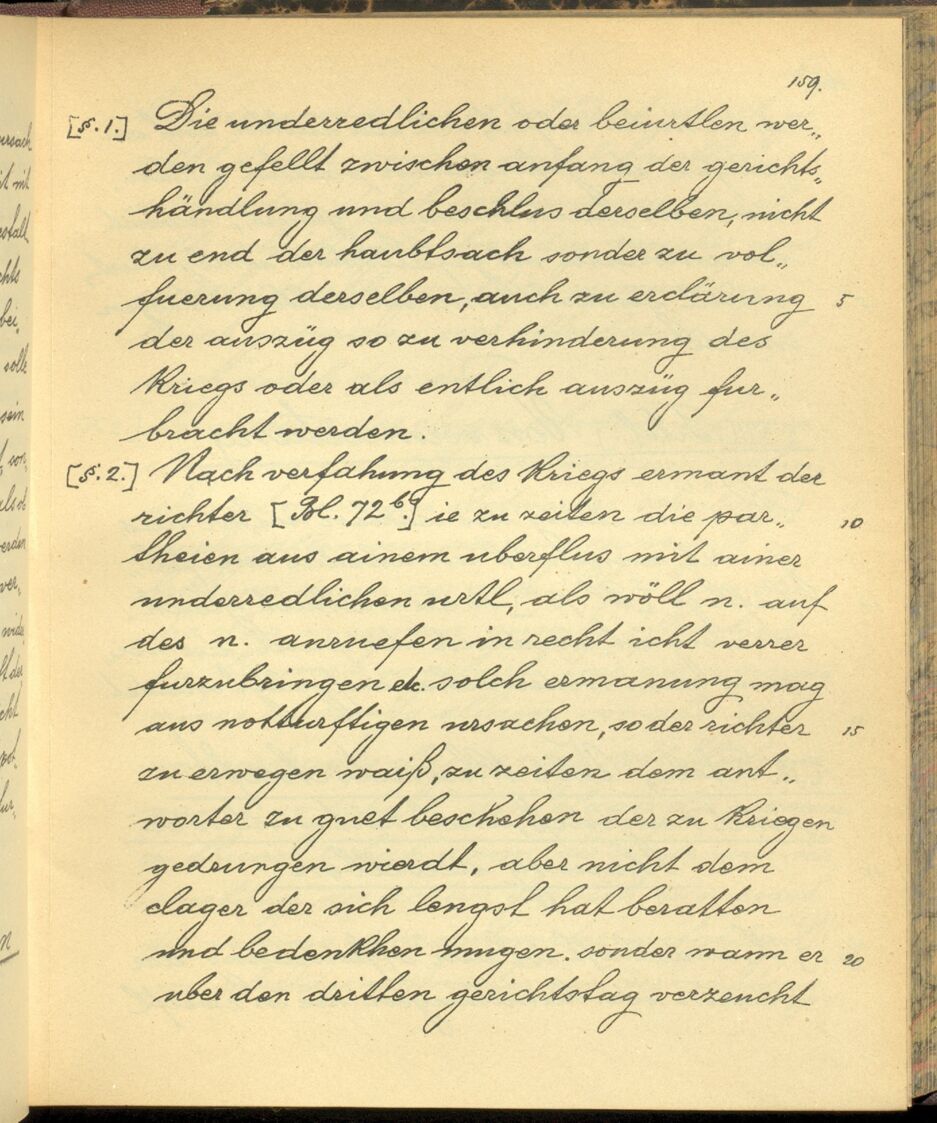 159.
[§. 1.] Die underredlichen oder beiurtlen wer„
den gefellt zwischen anfang der gerichts„
händlung und beschlus derselben, nicht
zu end der haubtsach sonder zu vol„
fuerung derselben, auch zu erclärung 5
der auszüg so zu verhinderung des
Kriegs oder als entlich auszüg fur„
bracht werden.
[§. 2.] Nach verfahung des Kriegs ermant der
richter [Bl. 72b.] ie zu zeiten die par„ 10
theien aus ainem uberflus mit ainer
underredlichen urtl, als wöll n. auf
des n. anruefen in recht icht verrer
furzubringen etc. solch ermanung mag
aus notturftigen ursachen, so der richter 15
zu erwegen waiß, zu zeiten dem ant„
worter zu guet beschehen der zu Kriegen
gedrungen wierdt, aber nicht dem
clager der sich lengst hat beratten
und bedenkhen mugen. sonder wann er 20
uber den dritten gerichtstag verzeucht
ursach
mit
bei„
solle
sein
ver„
fur„